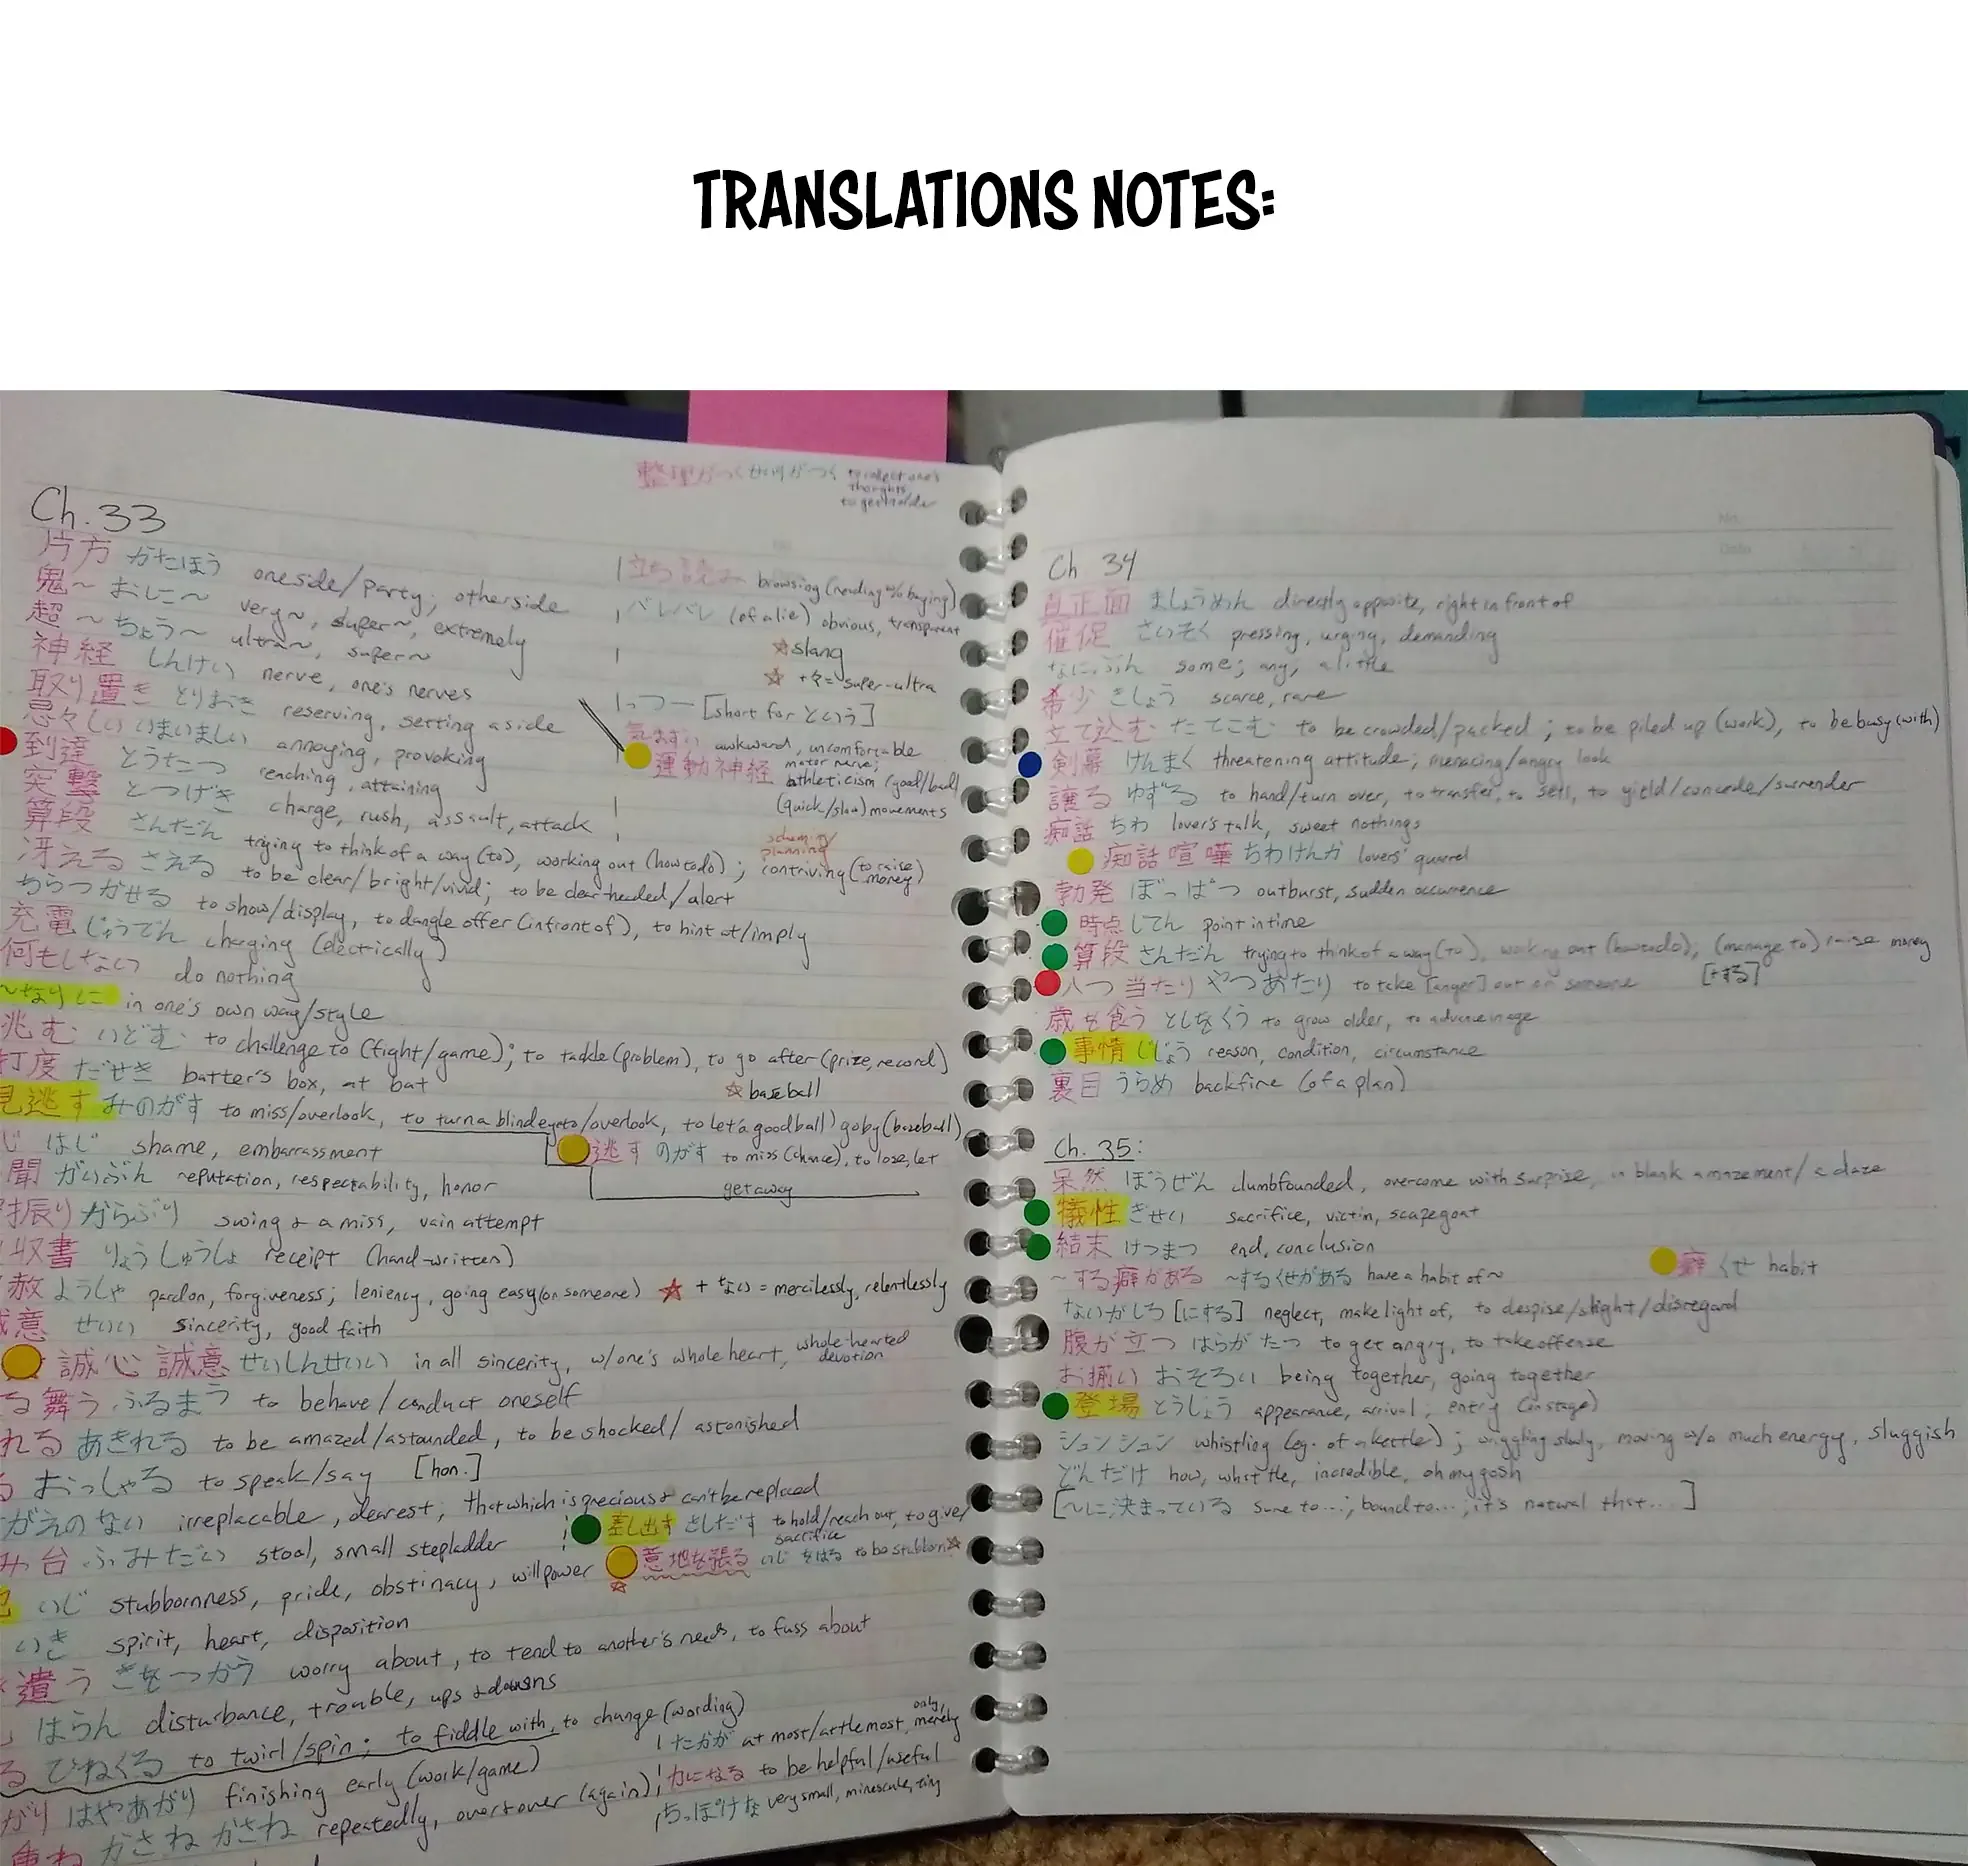 TRANSLATIONS NOTES:
整理がつく せいりがつく to collect one's thoughts to get in order
Ch. 33
片方 かたほう one side/party; otherside
鬼~ おに~ very~, super~, extremely
超~ ちょう~ ultra~, super~
神経 しんけい nerve, one's nerves
取り置き とりおき reserving, setting aside
忌々しい いまいましい annoying, provoking
到達 とうたつ reaching, attaining
突撃 とつげき charge, rush, assault, attack
算段 さんだん trying to think of a way (to), working out (how to do); contriving (to raise money)
scheming/planning
冴える さえる to be clear/bright/vivid; to be clear headed/alert
ちらつかせる to show/display, to dangle offer (in front of), to hint at/imply
充電 じゅうでん charging (electrically)
何もしない do nothing
~なりに in one's own way/style
挑む いどむ to challenge to (fight/game); to tackle (problem), to go after (prize, record)
打席 だせき batter's box, at bat
☆ baseball
見逃す みのがす to miss/overlook, to turn a blind eye to/overlook, to let a good ball go by (baseball)
逃す のがす to miss (chance), to lose, let get away
はじ shame, embarrassment
聞 がいぶん reputation, respectability, honor
振り からぶり swing & a miss, vain attempt
収書 りょうしゅうしょ receipt (hand-written)
赦 ようしゃ pardon, forgiveness; leniency, going easy (on someone) ☆ + ない = mercilessly, relentlessly
意 せいい sincerity, good faith
誠心誠意 せいしんせいい in all sincerity, w/one's whole heart, whole-hearted devotion
る舞う ふるまう to behave/conduct oneself
れる あきれる to be amazed/astounded, to be shocked/astonished
る おっしゃる to speak/say [hon.]
がえのない irreplacable, dearest; that which is precious & can't be replaced
差し出す さしだす to hold/reach out, to give/sacrifice
み台 ふみだい stool, small stepladder
いじ stubbornness, pride, obstinacy, willpower
意地を張る いじをはる to be stubborn ☆
いき spirit, heart, disposition
遣う きをつかう worry about, to tend to another's needs, to fuss about
はらん disturbance, trouble, ups & downs
る ひねくる to twirl/spin; to fiddle with, to change (wording)
がり はやあがり finishing early (work/game)
重ね かさねかさね repeatedly, over & over (again)
立ち読み browsing (reading w/o buying)
バレバレ (of a lie) obvious, transparent
☆ slang
☆ +々= super-ultra
っつー [short for という]
気まずい awkward, uncomfortable
運動神経 motor nerve; athleticism (good/bad) (quick/slow) movements
たかが at most/at the most, only, merely
力になる to be helpful/useful
ちっぽけな very small, minescule, tiny
Ch 34
真正面 ましょうめん directly opposite, right in front of
催促 さいそく pressing, urging, demanding
なにぶん some; any, a little
希少 きしょう scarce, rare
立て込む たてこむ to be crowded/packed; to be piled up (work), to be busy (with)
剣幕 けんまく threatening attitude; menacing/angry look
譲る ゆずる to hand/turn over, to transfer, to sell, to yield/concede/surrender
痴話 ちわ lover's talk, sweet nothings
痴話喧嘩 ちわげんか lovers' quarrel
勃発 ぼっぱつ outburst, sudden occurrence
時点 してん point in time
算段 さんだん trying to think of a way (to), working out (how to do); (manage to) raise money
[+する]
八つ当たり やつあたり to take [anger] out on someone
歳を食う としをくう to grow older, to advance in age
事情 じじょう reason, condition, circumstance
裏目 うらめ backfire (of a plan)
Ch. 35:
呆然 ぼうぜん dumbfounded, overcome with surprise, in blank amazement/a daze
犠牲 ぎせい sacrifice, victim, scapegoat
結末 けつまつ end, conclusion
~する癖がある ~するくせがある have a habit of~
癖 くせ habit
ないがしろ [にする] neglect, make light of, to despise/slight/disregard
腹が立つ はらがたつ to get angry, to take offense
お揃い おそろい being together, going together
登場 とうじょう appearance, arrival; entry (on stage)
シュンシュン whistling (eg. of a kettle); wriggling slowly, moving w/o much energy, sluggish
どんだけ how, what the, incredible, oh my gosh
[~に決まっている sure to...; bound to...; it's natural that...]